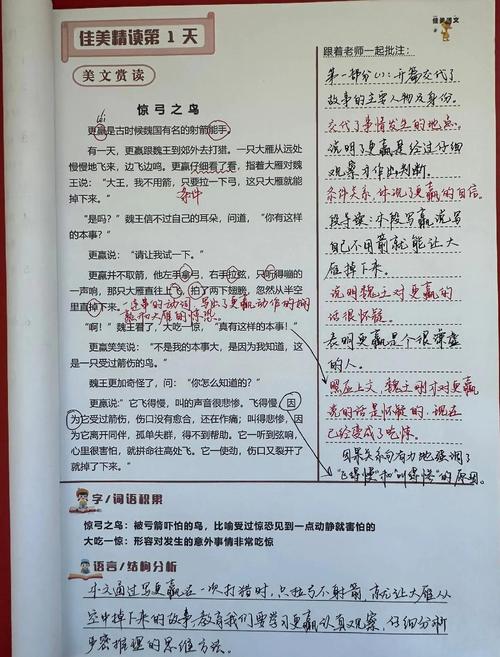 佳美精读第1天
美文赏读
惊弓之鸟
更羸是古时候魏国有名的射箭能手。
有一天，更羸跟魏王到郊外去打猎。一只大雁从远处
慢慢地飞来，边飞边鸣。更羸仔细看了看，指着大雁对魏
王说："大王，我不用箭，只要拉一下弓，这只大雁就能
掉下来。"
条件
"是吗？"魏王信不过自己的耳朵，问道，"你有这样
的本事？"
更羸说："请让我试一下。"
更羸并不取箭，他左手拿弓，右手拉弦，只听得嘣的
一声响，那只大雁直往上飞，拍了两下翅膀，忽然从半空
里直掉下来。
一连串的动词，写出了更羸动作的娴
熟和大雁的惊恐。
"啊！"魏王看了，大吃一惊，"真有这样的本事！"
更羸笑笑说："不是我的本事大，是因为我知道，这
是一只受过箭伤的鸟。"
魏王更加奇怪了，问："你怎么知道的？"
更羸说："它飞得慢，叫的声音很悲惨。飞得慢，因
为它受过箭伤，伤口没有愈合，还在作痛；叫得悲惨，因
为它离开同伴，孤单失群，得不到帮助。它一听到弦响，
心里很害怕，就拼命往高处飞。它一使劲，伤口又裂开了
就掉了下来。"
字/词语积累
惊弓之鸟：被弓箭吓怕的鸟，比喻受过惊恐见到一点动静就害怕的
大吃一惊：形容对发生的意外事情非常吃惊
语言/结构分析
本文通过写更羸在一次打猎时，只拉弓不射箭就让大雁从
空中掉下来的故事，教育我们要学习更羸认真观察，仔细分析
严密推理的思维方法。
佳美语文
跟着老师一起批注：
第一部分(1)：开篇交代了
故事的主要人物及身份。
交代了事情发生的地点。
说明了更羸是经过仔细
观察才作出判断。
条件关系，体现了更羸的自信。
段导读：本段写更羸说写
自己不用箭就能让大
雁掉下来。
说明魏王对更羸的
话很怀疑。
表明更羸是个很谦虚
的人。
照应上文，魏王刚才对更羸
说的话是怀疑的，现在
已经变成了吃惊。
因果关系句有力地强调了
"飞得慢"和"叫得惨"的原因。